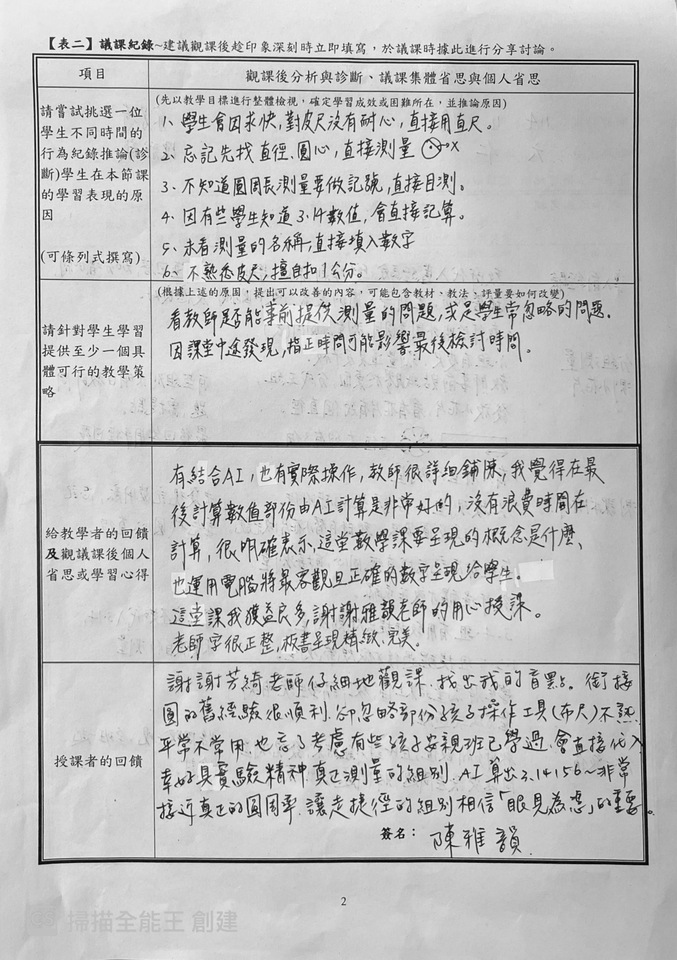 【表二】議課紀錄~建議觀課後趁印象深刻時立即填寫，於議課時據此進行分享討論。
項目
觀課後分析與診斷、議課集體省思與個人省思
請嘗試挑選一位
學生不同時間的
行為紀錄推論(診
斷)學生在本節課
的學習表現的原
因
(可條列式撰寫)
(先以教學目標進行整體檢視，確定學習成效或困難所在，並推論原因)
1、學生會因求快，對皮尺沒有耐心，直接用直尺。
2、忘記先找直徑、圓心，直接測量
3、不知道圓周長測量要做記號，直接目測。
4、因有些學生知道3.14數值，會直接記算。
5、未看測量的名稱，直接填入數字
6、不熟悉皮尺，擅自扣1公分。
請針對學生學習
提供至少一個具
體可行的教學策
略
(根據上述的原因，提出可以改善的內容，可能包含教材、教法、評量要如何改變)
看教師是否能事前提供測量的問題，或是學生常忽略的問題。
因課堂中途發現，指正時間可能影響最後檢討時間。
給教學者的回饋
及觀議課後個人
省思或學習心得
有結合AI，也有實際操作，教師很詳細鋪陳，我覺得在最
後計算數值部份由AI計算是非常好的，沒有浪費時間在
計算，很明確表示這堂數學課要呈現的概念是什麼，
也運用電腦將最客觀且正確的數字呈現給學生。
這堂課我獲益良多，謝謝雅韻老師的用心授課。
老師字很正整，板書呈現精緻、完美。
授課者的回饋
謝謝芳綺老師仔細地觀課，找出我的盲點。銜接
圓的舊經驗很順利，卻忽略部份孩子操作工具(布尺)不熟
平常不常用，也忘了考慮有些孩子安親班已學過，會直接代入
幸好具實驗精神真正測量的組別，AI算出3.14156~非常
接近真正的圓周率，讓走捷徑的組別相信「眼見為憑」的重要。
簽名：陳雅韻
2
掃描全能王 創建